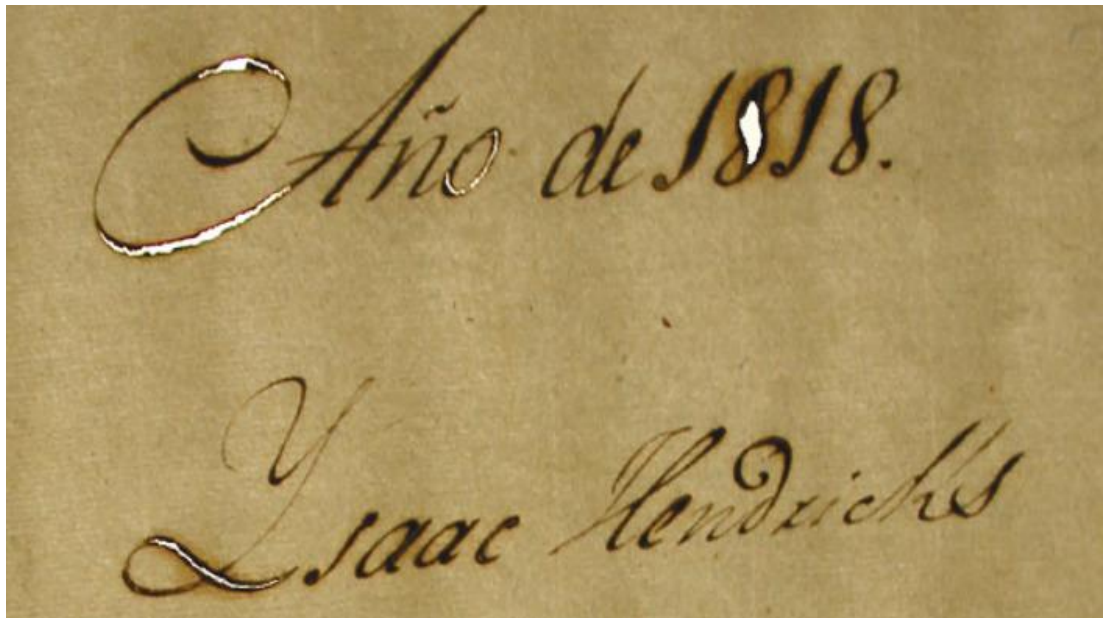 Año de 1818.
Ysaac Hendricks